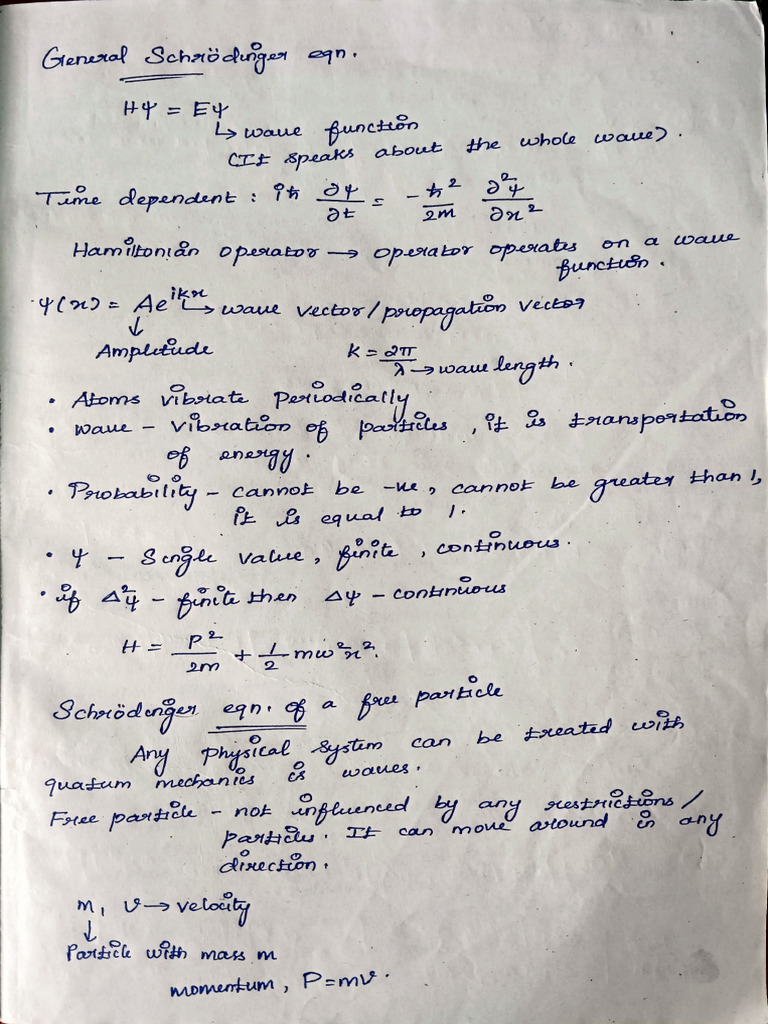 General Schrödinger eqn.
Hψ = Eψ
↳ wave function
(It speaks about the whole wave).
Time dependent : iħ ∂ψ/∂t = -ħ²/2m ∂²ψ/∂x²
Hamiltonian operator → operator operates on a wave
function.
ψ(x) = Ae^ikx ↳ wave vector/propagation vector
↓
Amplitude K = 2π/λ → wave length.
• Atoms vibrate periodically
• wave – vibration of particles, it is transportation
of energy.
• Probability – cannot be -ve, cannot be greater than 1,
it is equal to 1.
• ψ – Single value, finite, continuous.
• if Δ²ψ – finite then Δψ – continuous
H = P²/2m + 1/2 mω²x².
Schrödinger eqn. of a free particle
Any physical system can be treated with
quatum mechanics is waves.
Free particle – not influenced by any restrictions/
particles. It can move around in any
direction.
m, v → velocity
↓
Particle with mass m
momentum, P = mv.